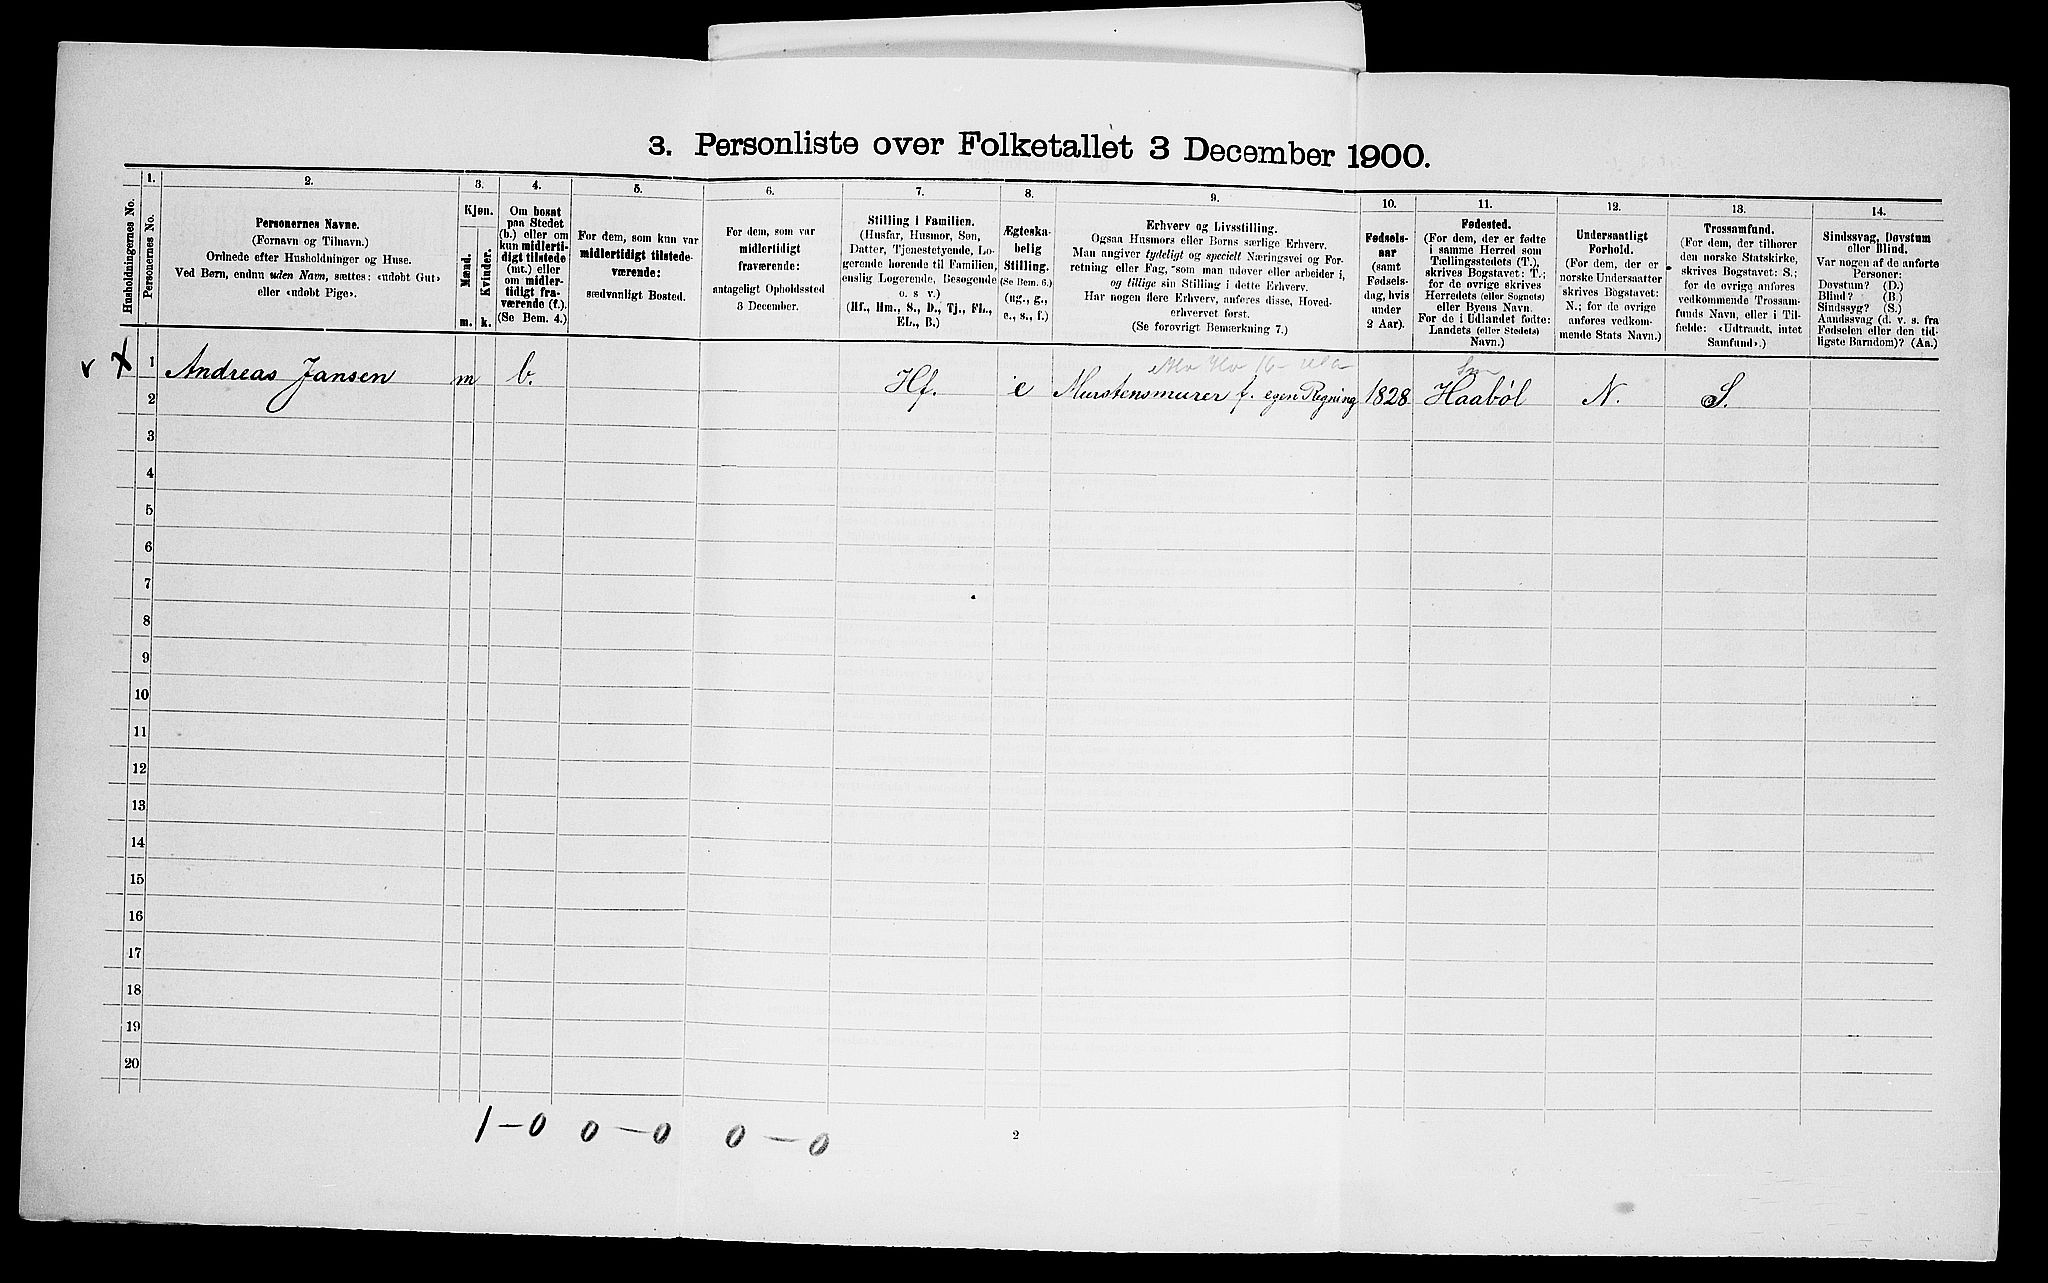 3. Personliste over Folketallet 3 December 1900.
Husholdningernes No.
1.
Personernes No.
2.
Personernes Navne.
(Fornavn og Tilnavn.)
Ordnede efter Husholdninger og Huse.
Ved Børn, endnu uden Navn, sættes: «udøbt Gut»
eller «udøbt Pige».
3.
Kjøn.
Mænd.
Kvinder.
m.
k.
4.
Om bosat
paa Stedet
(b.) eller om
kun midlerti-
digt tilstede
(mt.) eller
om midler-
tidigt fra-
værende (f.).
(Se Bem. 4.)
5.
For dem, som kun var
midlertidigt tilstede-
værende:
sædvanligt Bosted.
6.
For dem, som var
midlertidigt
fraværende:
antageligt Opholdssted
3 December.
7.
Stilling i Familien.
(Husfar, Husmor, Søn,
Datter, Tjenestetyende, Lo-
gerende hørende til Familien,
enslig Logerende, Besøgende
o. s v.)
(Hf., Hm., S., D., Tj., FL.,
EL., B.)
8.
Ægteska-
belig
Stilling.
(Se Bem. 6.)
(ug., g.,
e., s., f.)
9.
Erhverv og Livsstilling.
Ogsaa Husmors eller Børns særlige Erhverv.
Man angiver tydeligt og specielt Næringsvei og For-
retning eller Fag, som man udøver eller arbeider i,
og tillige sin Stilling i dette Erhverv.
Har nogen flere Erhverv, anføres disse, Hoved-
erhvervet først.
(Se forøvrigt Bemærkning 7.)
10.
Fødsels-
aar
(samt
Fødsels-
dag, hvis
under
2 Aar).
11.
Fødested.
(For dem, der er fødte
i samme Herred som
Tællingsstedets (T.),
skrives Bogstavet: T.;
for de øvrige skrives
Herredets (eller Sognets)
eller Byens Navn.
For de i Udlandet fødte:
Landets (eller Stedets)
Navn.)
12.
Undersaatligt
Forhold.
(For dem, der er
norske Undersaatter
skrives Bogstavet:
N.; for de øvrige
anføres vedkom-
mende Stats Navn.)
13.
Trossamfund.
(For dem, der tilhører
den norske Statskirke,
skrives Bogstavet: S.;
for de øvrige anføres
vedkommende Trossam-
funds Navn, eller i Til-
fælde: «Udtraadt, intet
Samfund».)
14.
Sindssvag, Døvstum
eller Blind.
Var nogen af de anførte
Personer:
Døvstum? (D.)
Blind? (B.)
Sindssyg? (S.)
Aandssvag (d. v. s. fra
Fødselen eller den tid-
ligste Barndom)? (Aa.)
v X 1 Andreas Jansen m b. Hf. e Murstensmurer f. egen Regning 1828 Haabøl N. S.
2
3
4
5
6
7
8
9
10
11
12
13
14
15
16
17
18
19
20
1 – 0 0 – 0 0 – 0
2